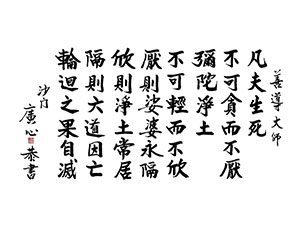 善導大師
凡夫生死
不可貪而不厭
彌陀淨土
不可輕而不欣
厭則娑婆永隔
欣則淨土常居
隔則六道因亡
輪迴之果自滅
沙門
廣心恭書